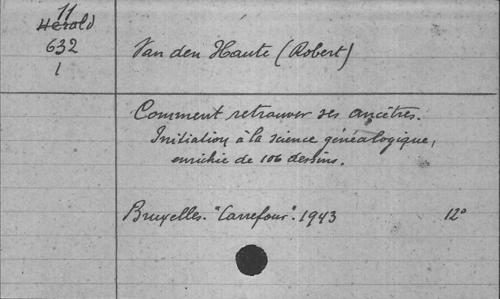 11
Herald
632
1
Van den Haute (Robert)
Comment retrouver ses ancêtres.
Initiation à la science généalogique,
enrichie de 106 dessins.
Bruxelles. "Carrefour". 1943 12°